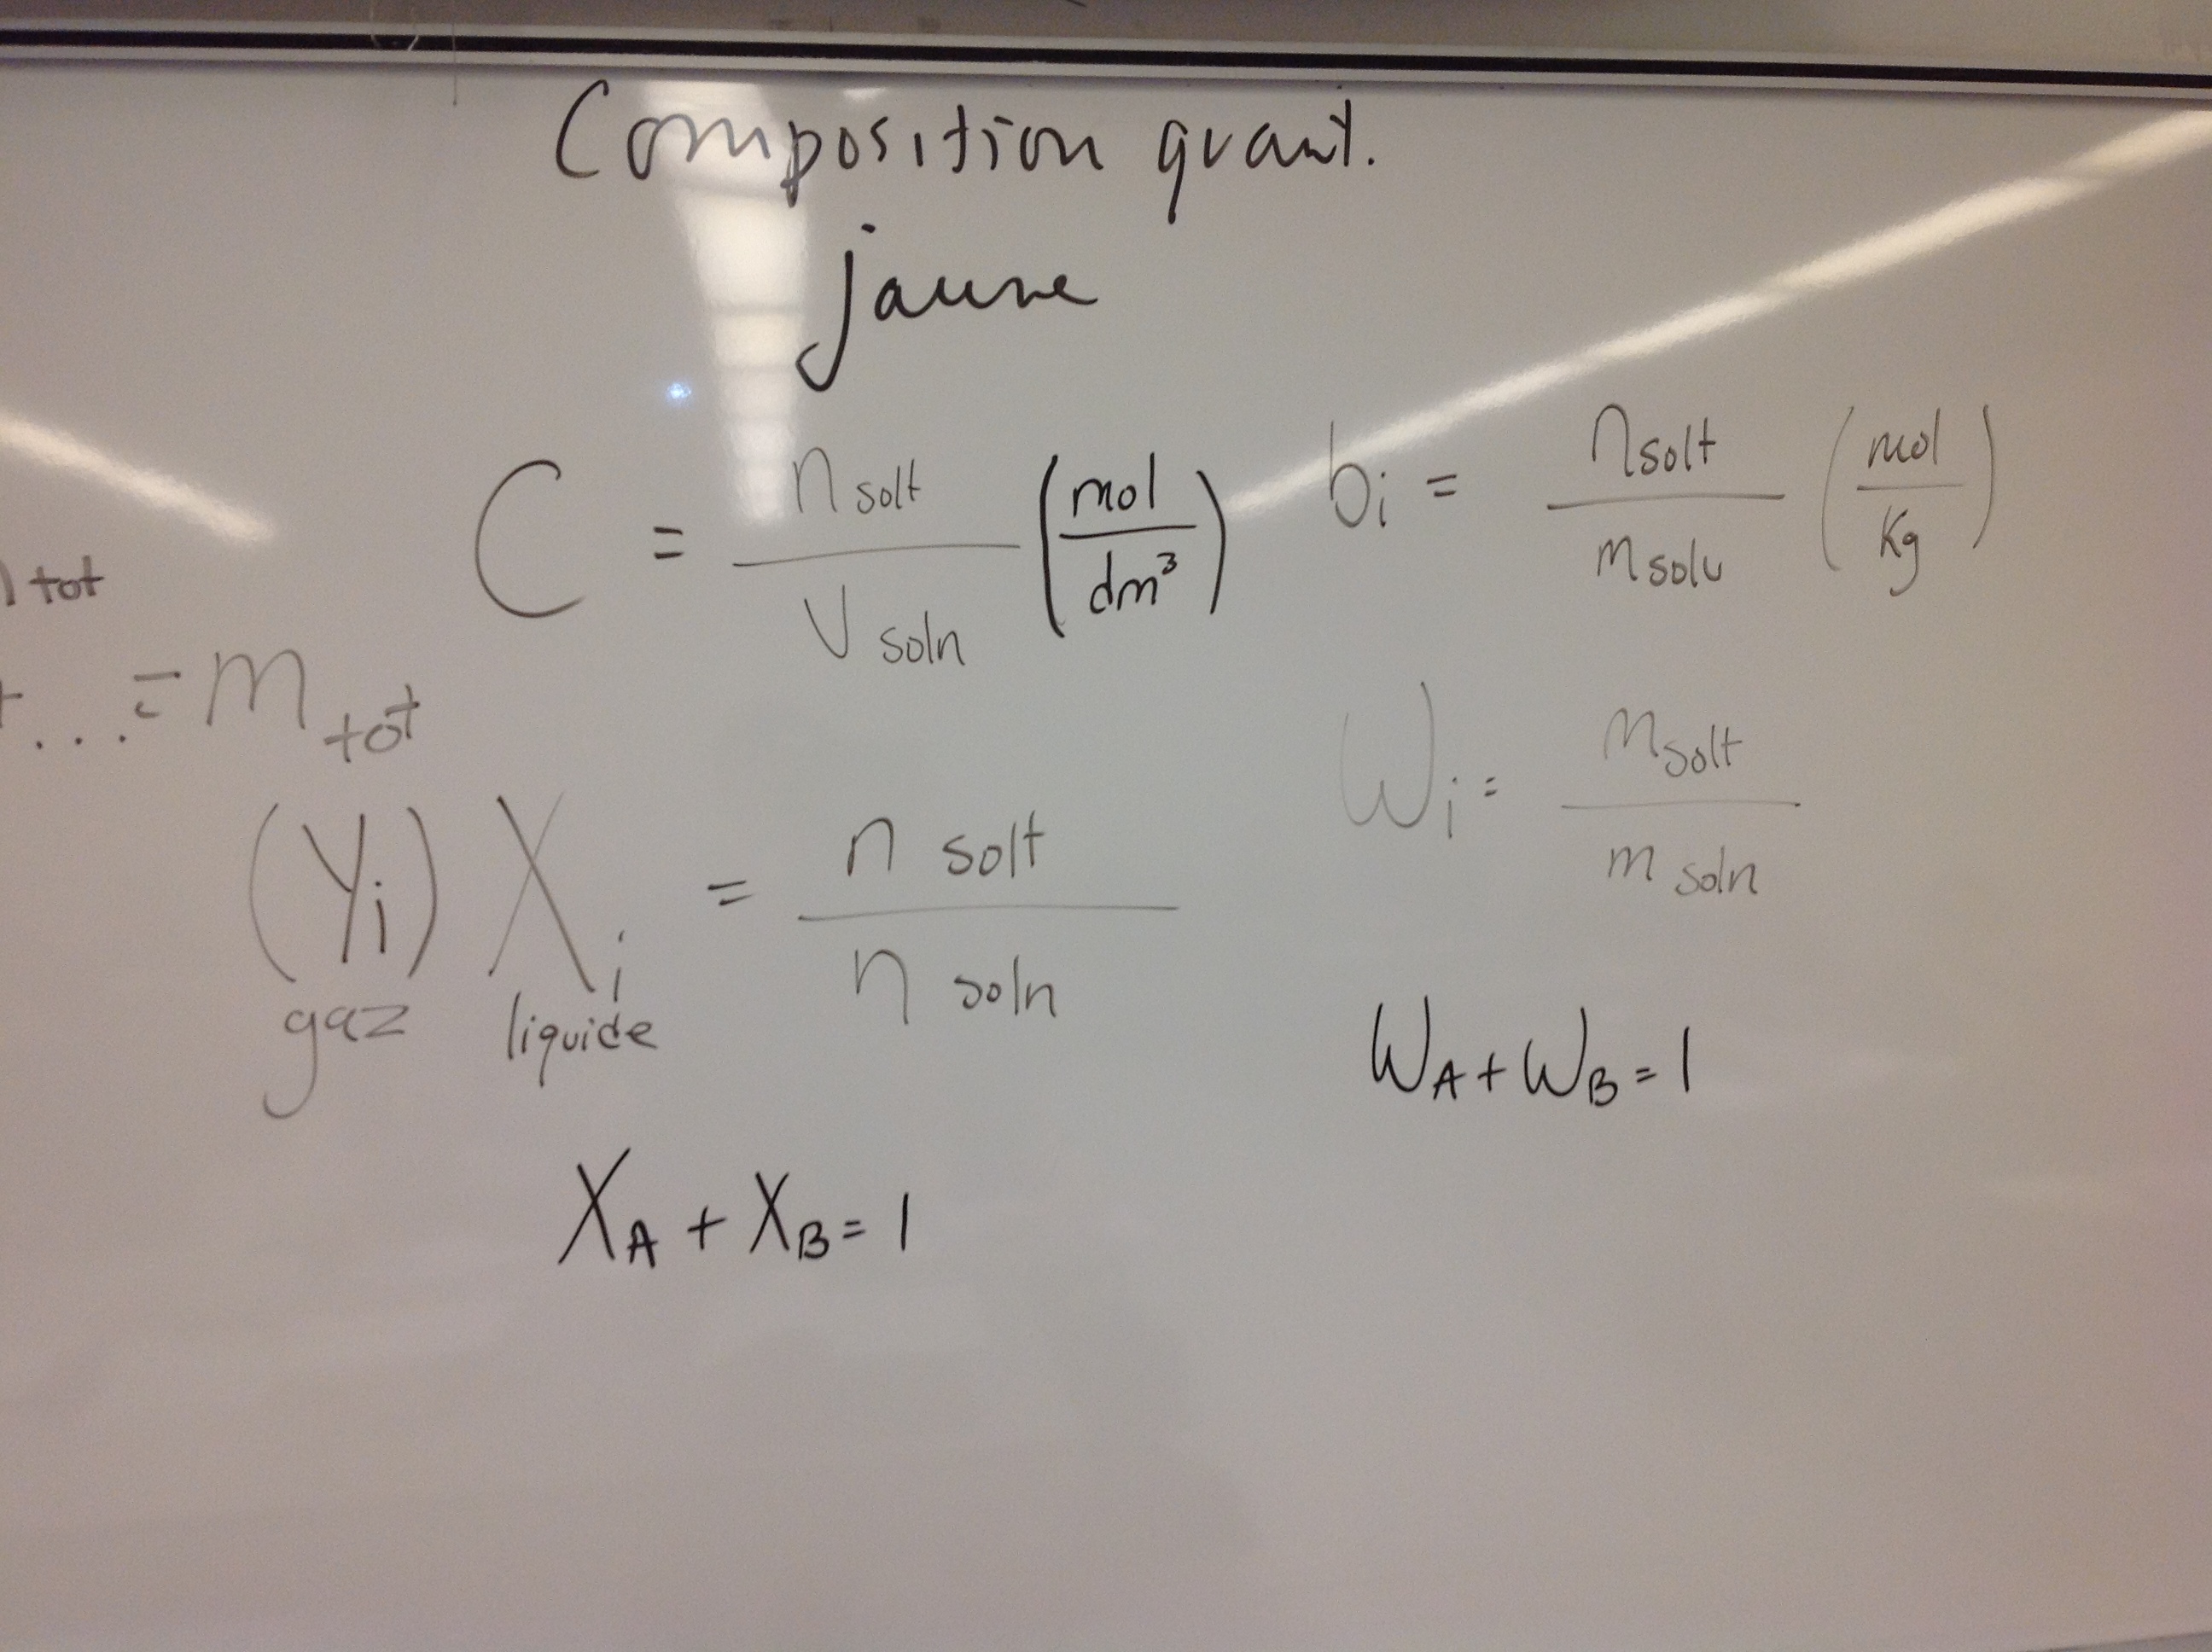 Composition quant.
jaune
C = n solt / V soln (mol / dm³)
bi = n solt / m solv (mol / Kg)
tot
... = m tot
(Yi) Xi = n solt / n soln
gaz liquide
Wi = m solt / m soln
WA + WB = 1
XA + XB = 1